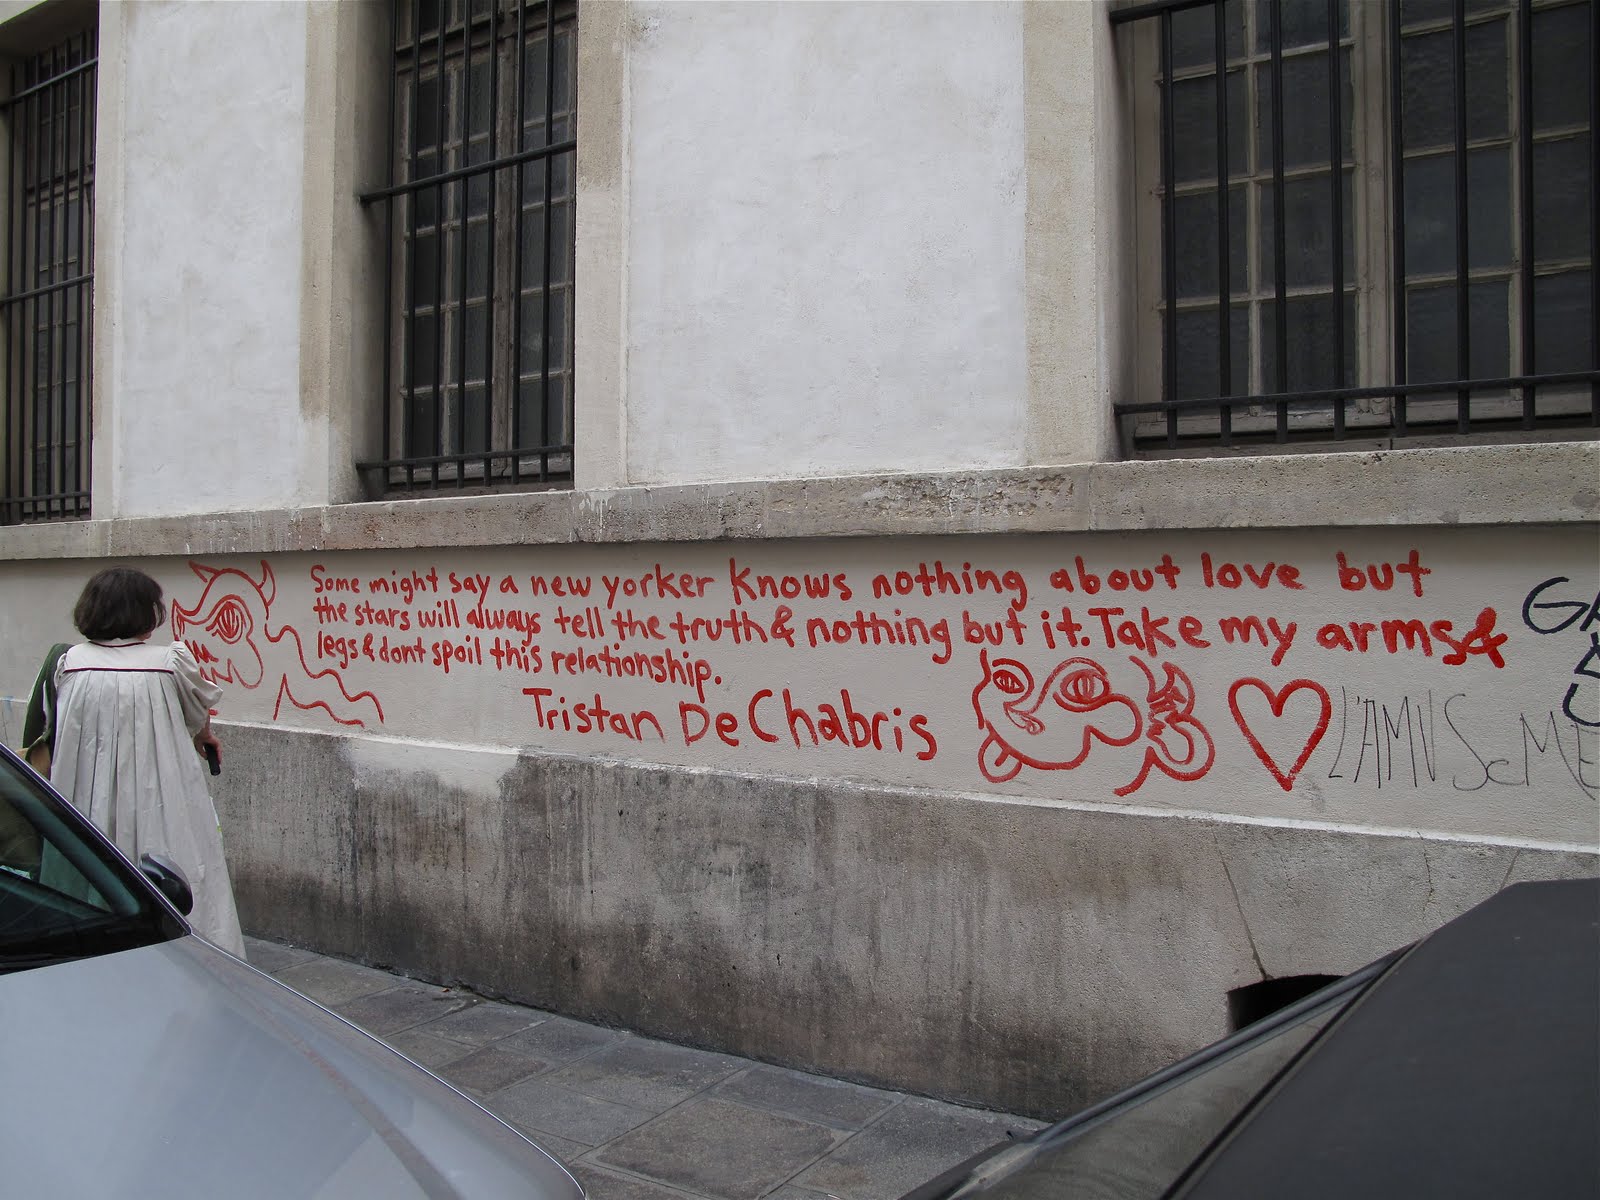 Some might say a new yorker knows nothing about love but
the stars will always tell the truth & nothing but it. Take my arms &
legs & dont spoil this relationship.
Tristan De Chabris
L'AMUSeME